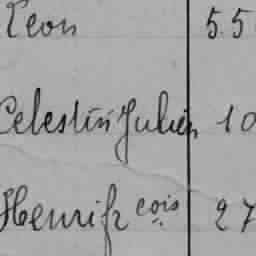 Leon 55
Celestin Julien 10
Henri fr çois 27